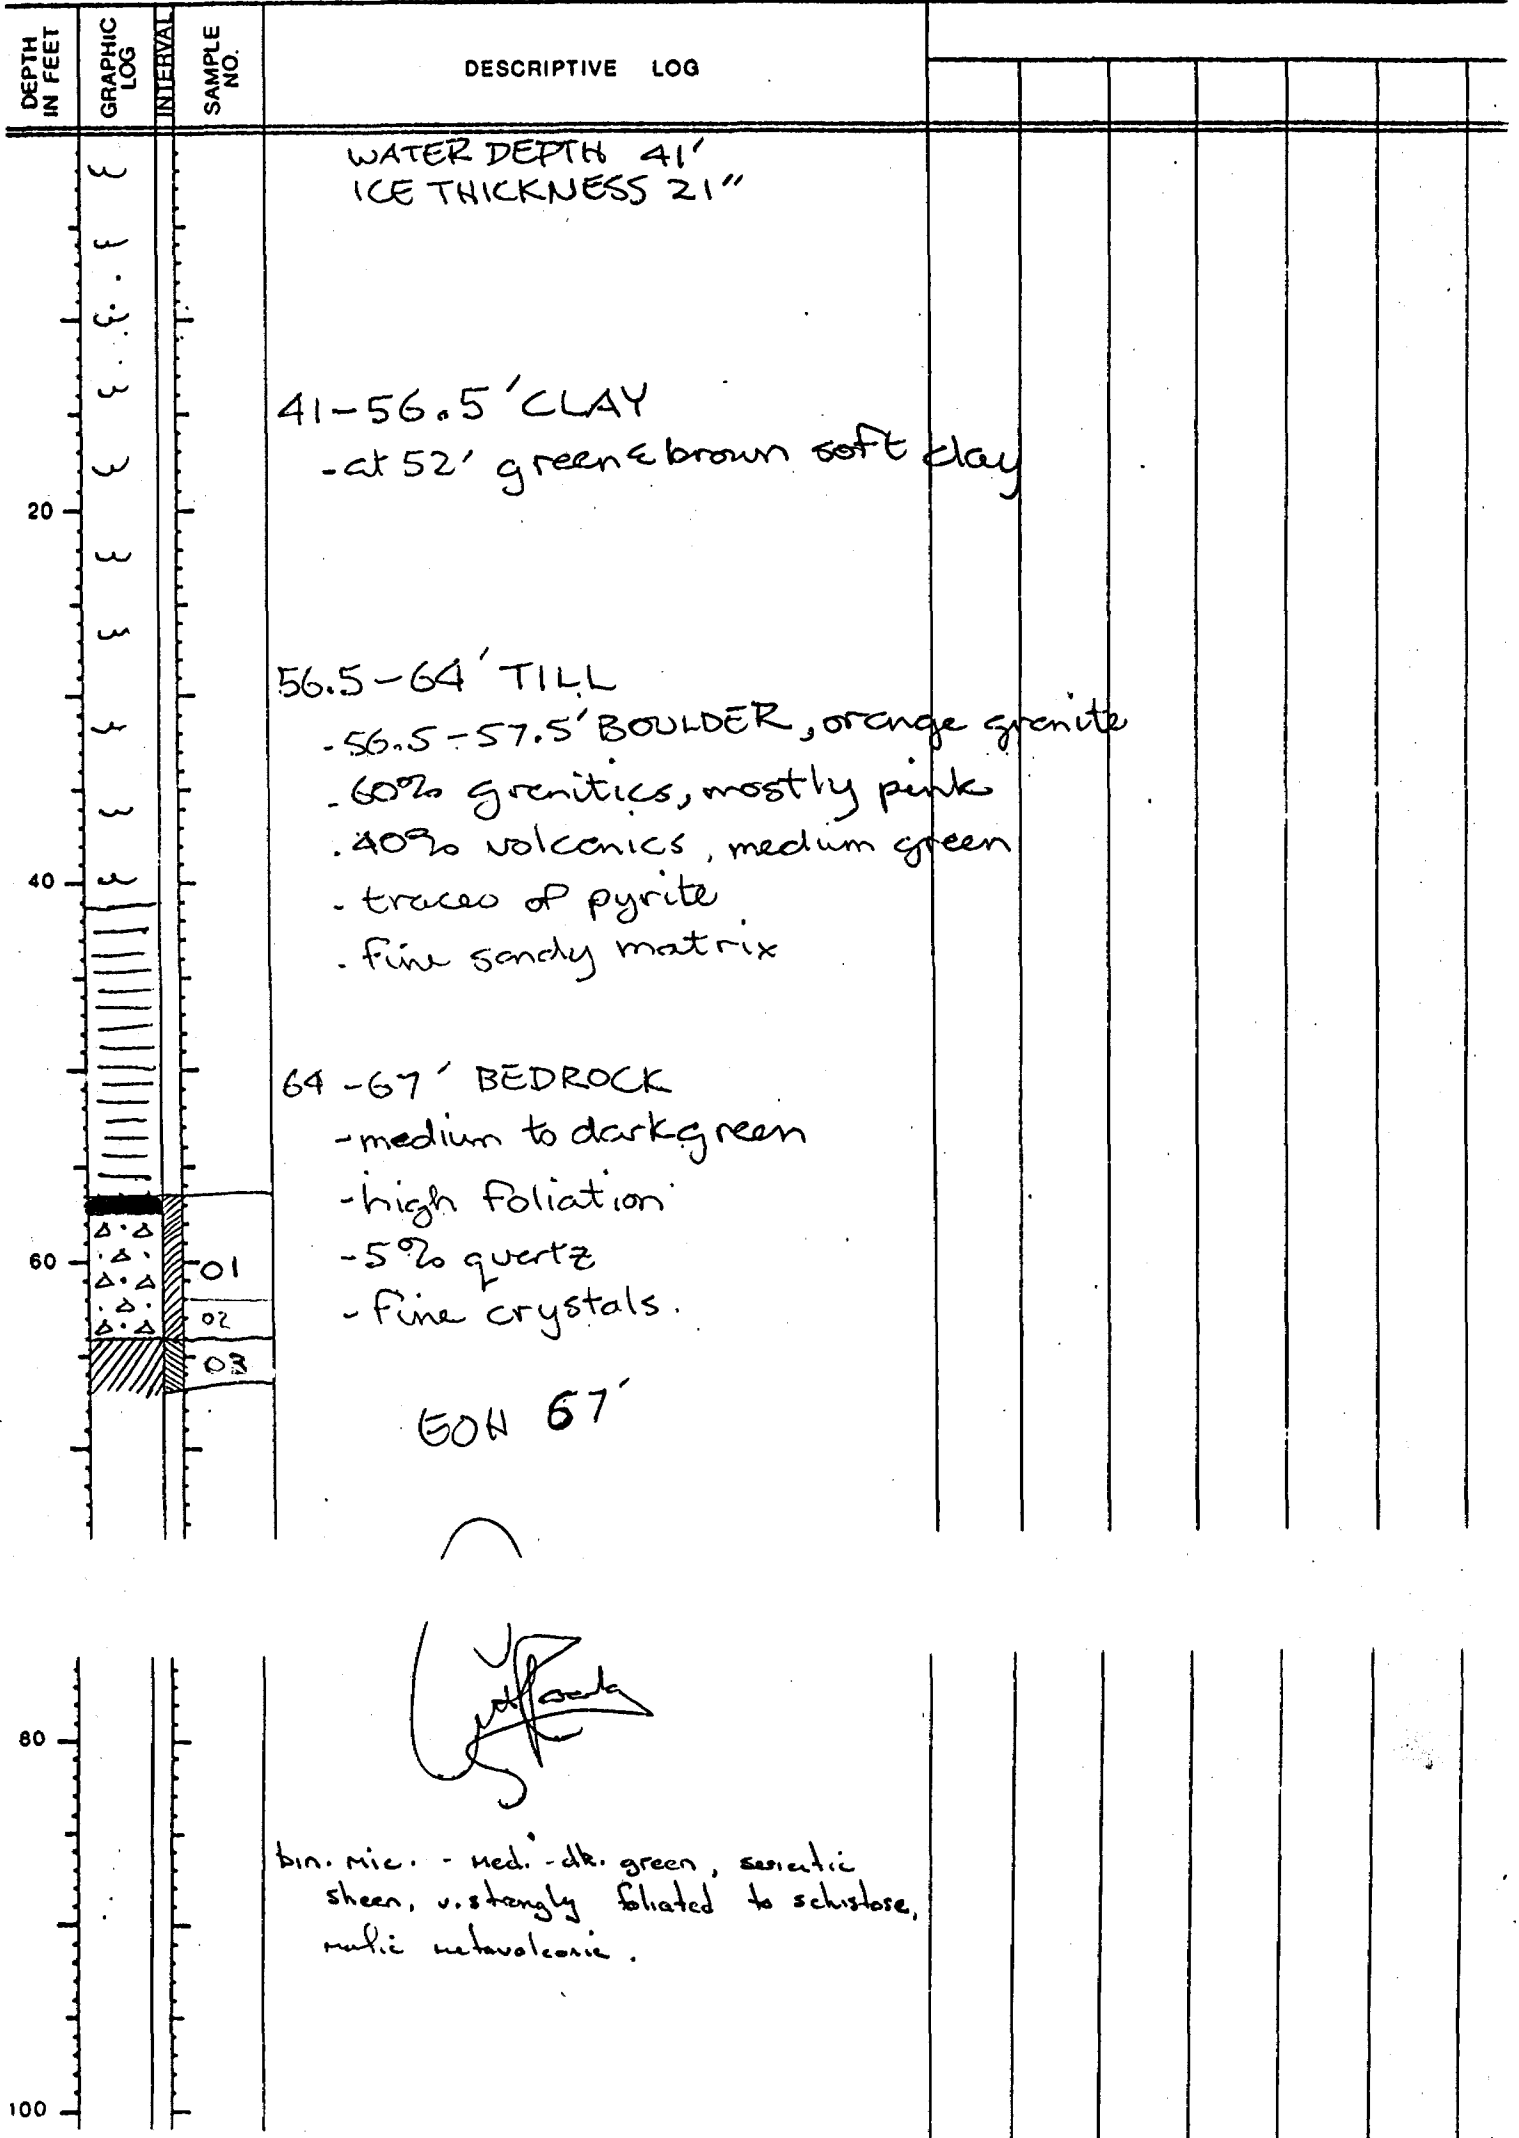 DEPTH IN FEET
GRAPHIC LOG
INTERVAL
SAMPLE NO.
DESCRIPTIVE LOG
WATER DEPTH 41'
ICE THICKNESS 21"
41-56.5' CLAY
- at 52' green & brown soft clay
20
56.5-64' TILL
- 56.5-57.5' BOULDER, orange granite
- 60% granitics, mostly pink
- 40% volcanics, medium green
40
- traces of pyrite
- fine sandy matrix
64-67' BEDROCK
- medium to dark green
- high foliation
60
01
- 5% quartz
02
- fine crystals.
03
EOH 67'
80
bin. mic. - med. - dk. green, sericitic
sheen, v. strongly foliated to schistose,
mafic metavolcanic.
100